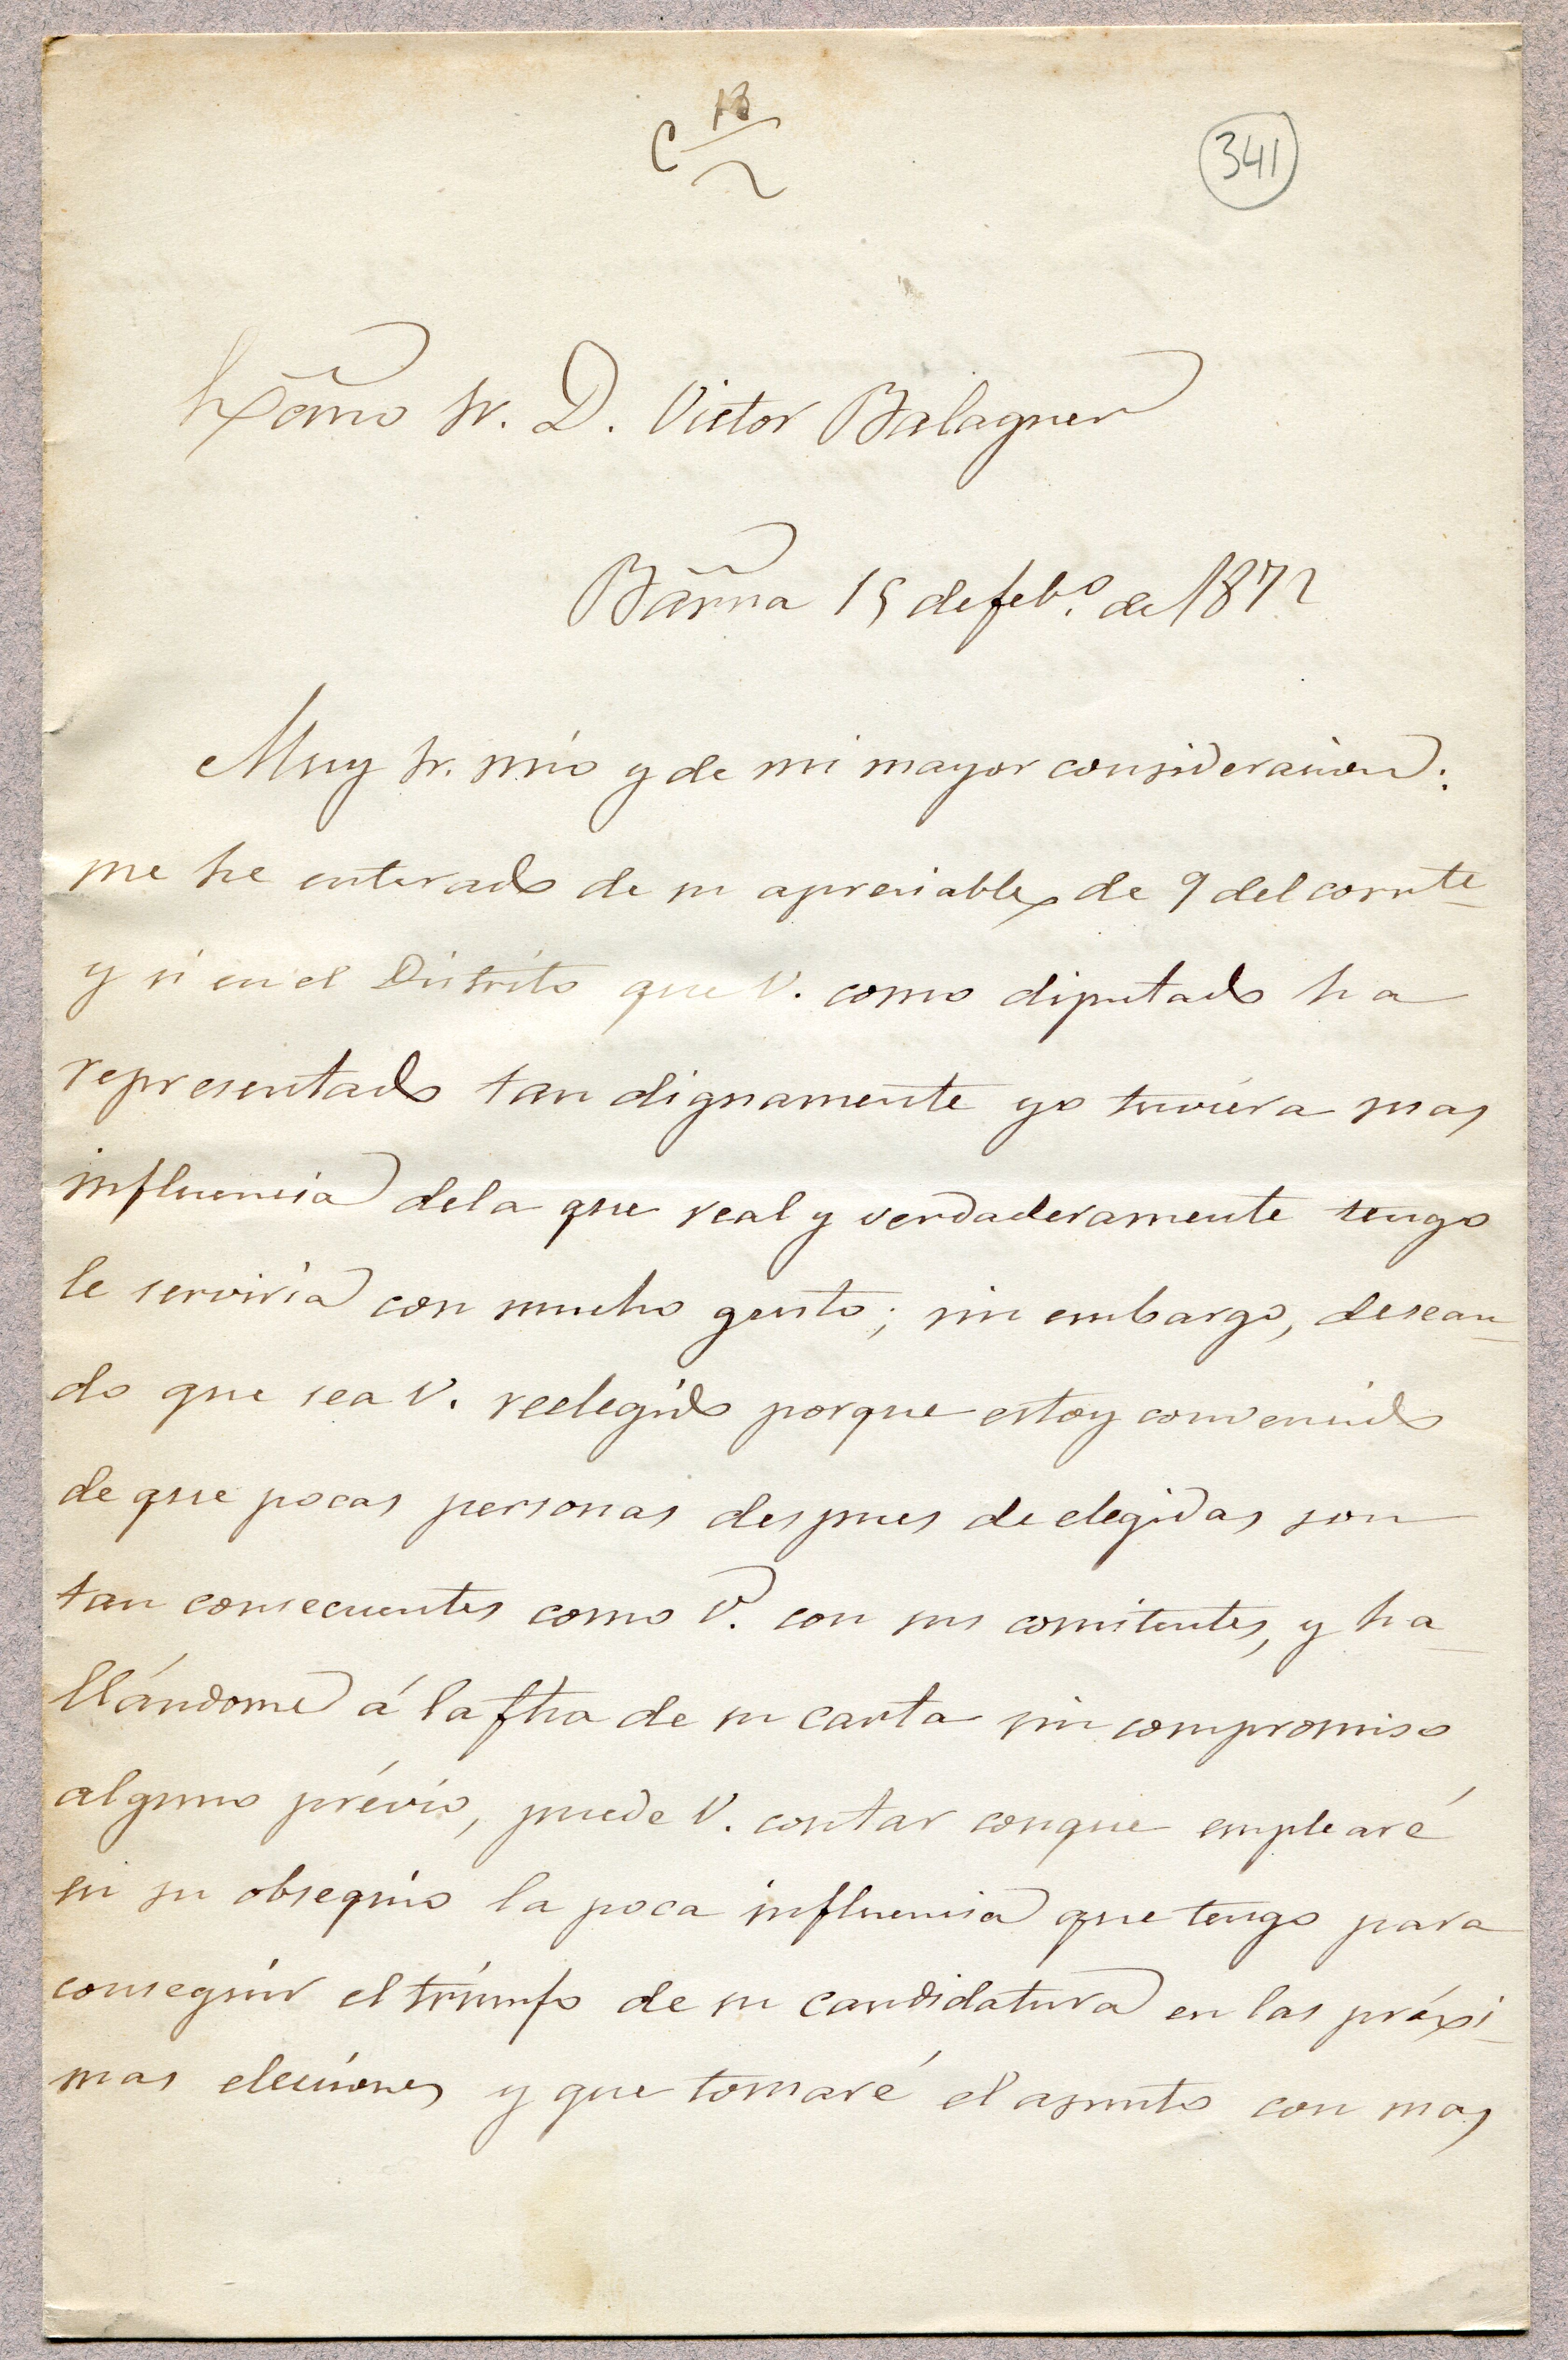 C 18
341
Exc̃mo Sr. D. Victor Balaguer
Bar̃na 15 de feb.º de 1872
Muy Sr. mio y de mi mayor consideracion:
me he enterado de su apreciable de 9 del corrte
y si en el Distrito que V. como diputado ha
representado tan dignamente yo tuviera mas
influencia de la que real y verdaderamente tengo
le serviria con mucho gusto; sin embargo, desean-
do que sea V. reelegido porque estoy convencido
de que pocas personas despues de elegidas son
tan consecuentes como V. con sus comitentes, y ha-
llándome á la fha de su carta sin compromiso
alguno prévio, puede V. contar conque emplearé
en su obsequio la poca influencia que tengo para
conseguir el triunfo de su candidatura en las próxi-
mas elecciones y que tomaré el asunto con mas